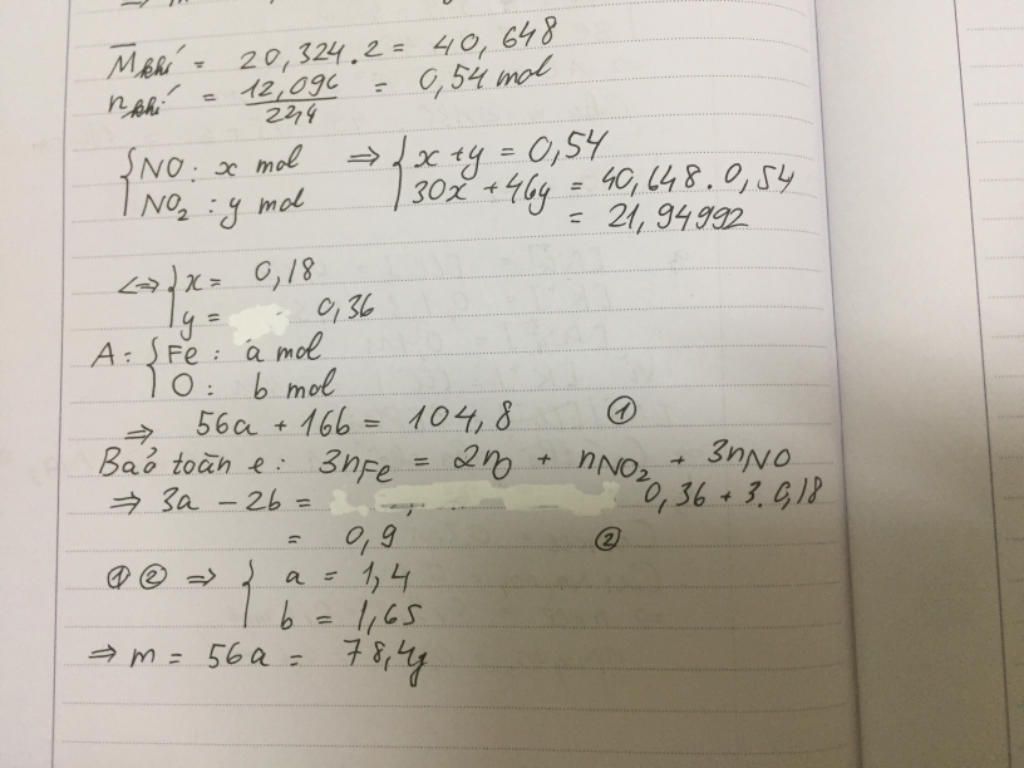 M̅khí = 20,324.2 = 40,648
nkhí = 12,096/22,4 = 0,54 mol
{NO: x mol ⇒ {x + y = 0,54
NO₂: y mol 30x + 46y = 40,648.0,54
= 21,94992
<=> {x = 0,18
y = 0,36
A: {Fe: a mol
O: b mol
⇒ 56a + 16b = 104,8 ①
Bảo toàn e: 3nFe = 2nO + nNO₂ + 3nNO
⇒ 3a - 2b = 0,36 + 3.0,18
= 0,9 ②
① ② ⇒ { a = 1,4
b = 1,65
⇒ m = 56a = 78,4g